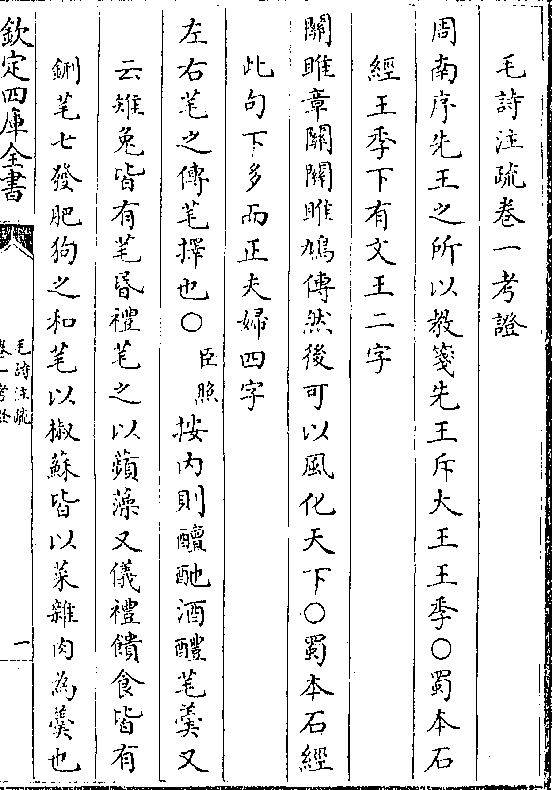 毛詩注疏卷一考證
周南序先王之所以教箋先王斥大王王季○蜀本石
經王季下有文王二字
關雎章關關雎鳩傳然後可以風化天下○蜀本石經
此句下多而正夫婦四字
左右芼之傳芼擇也○臣照按内則饘酏酒醴芼羮又
云雉兔皆有芼昏禮芼之以蘋藻又儀禮饋食皆有
鉶芼七發肥狗之和芼以椒蘇皆以菜雜肉為羮也
欽定四庫全書
毛詩注疏
卷一考證
一